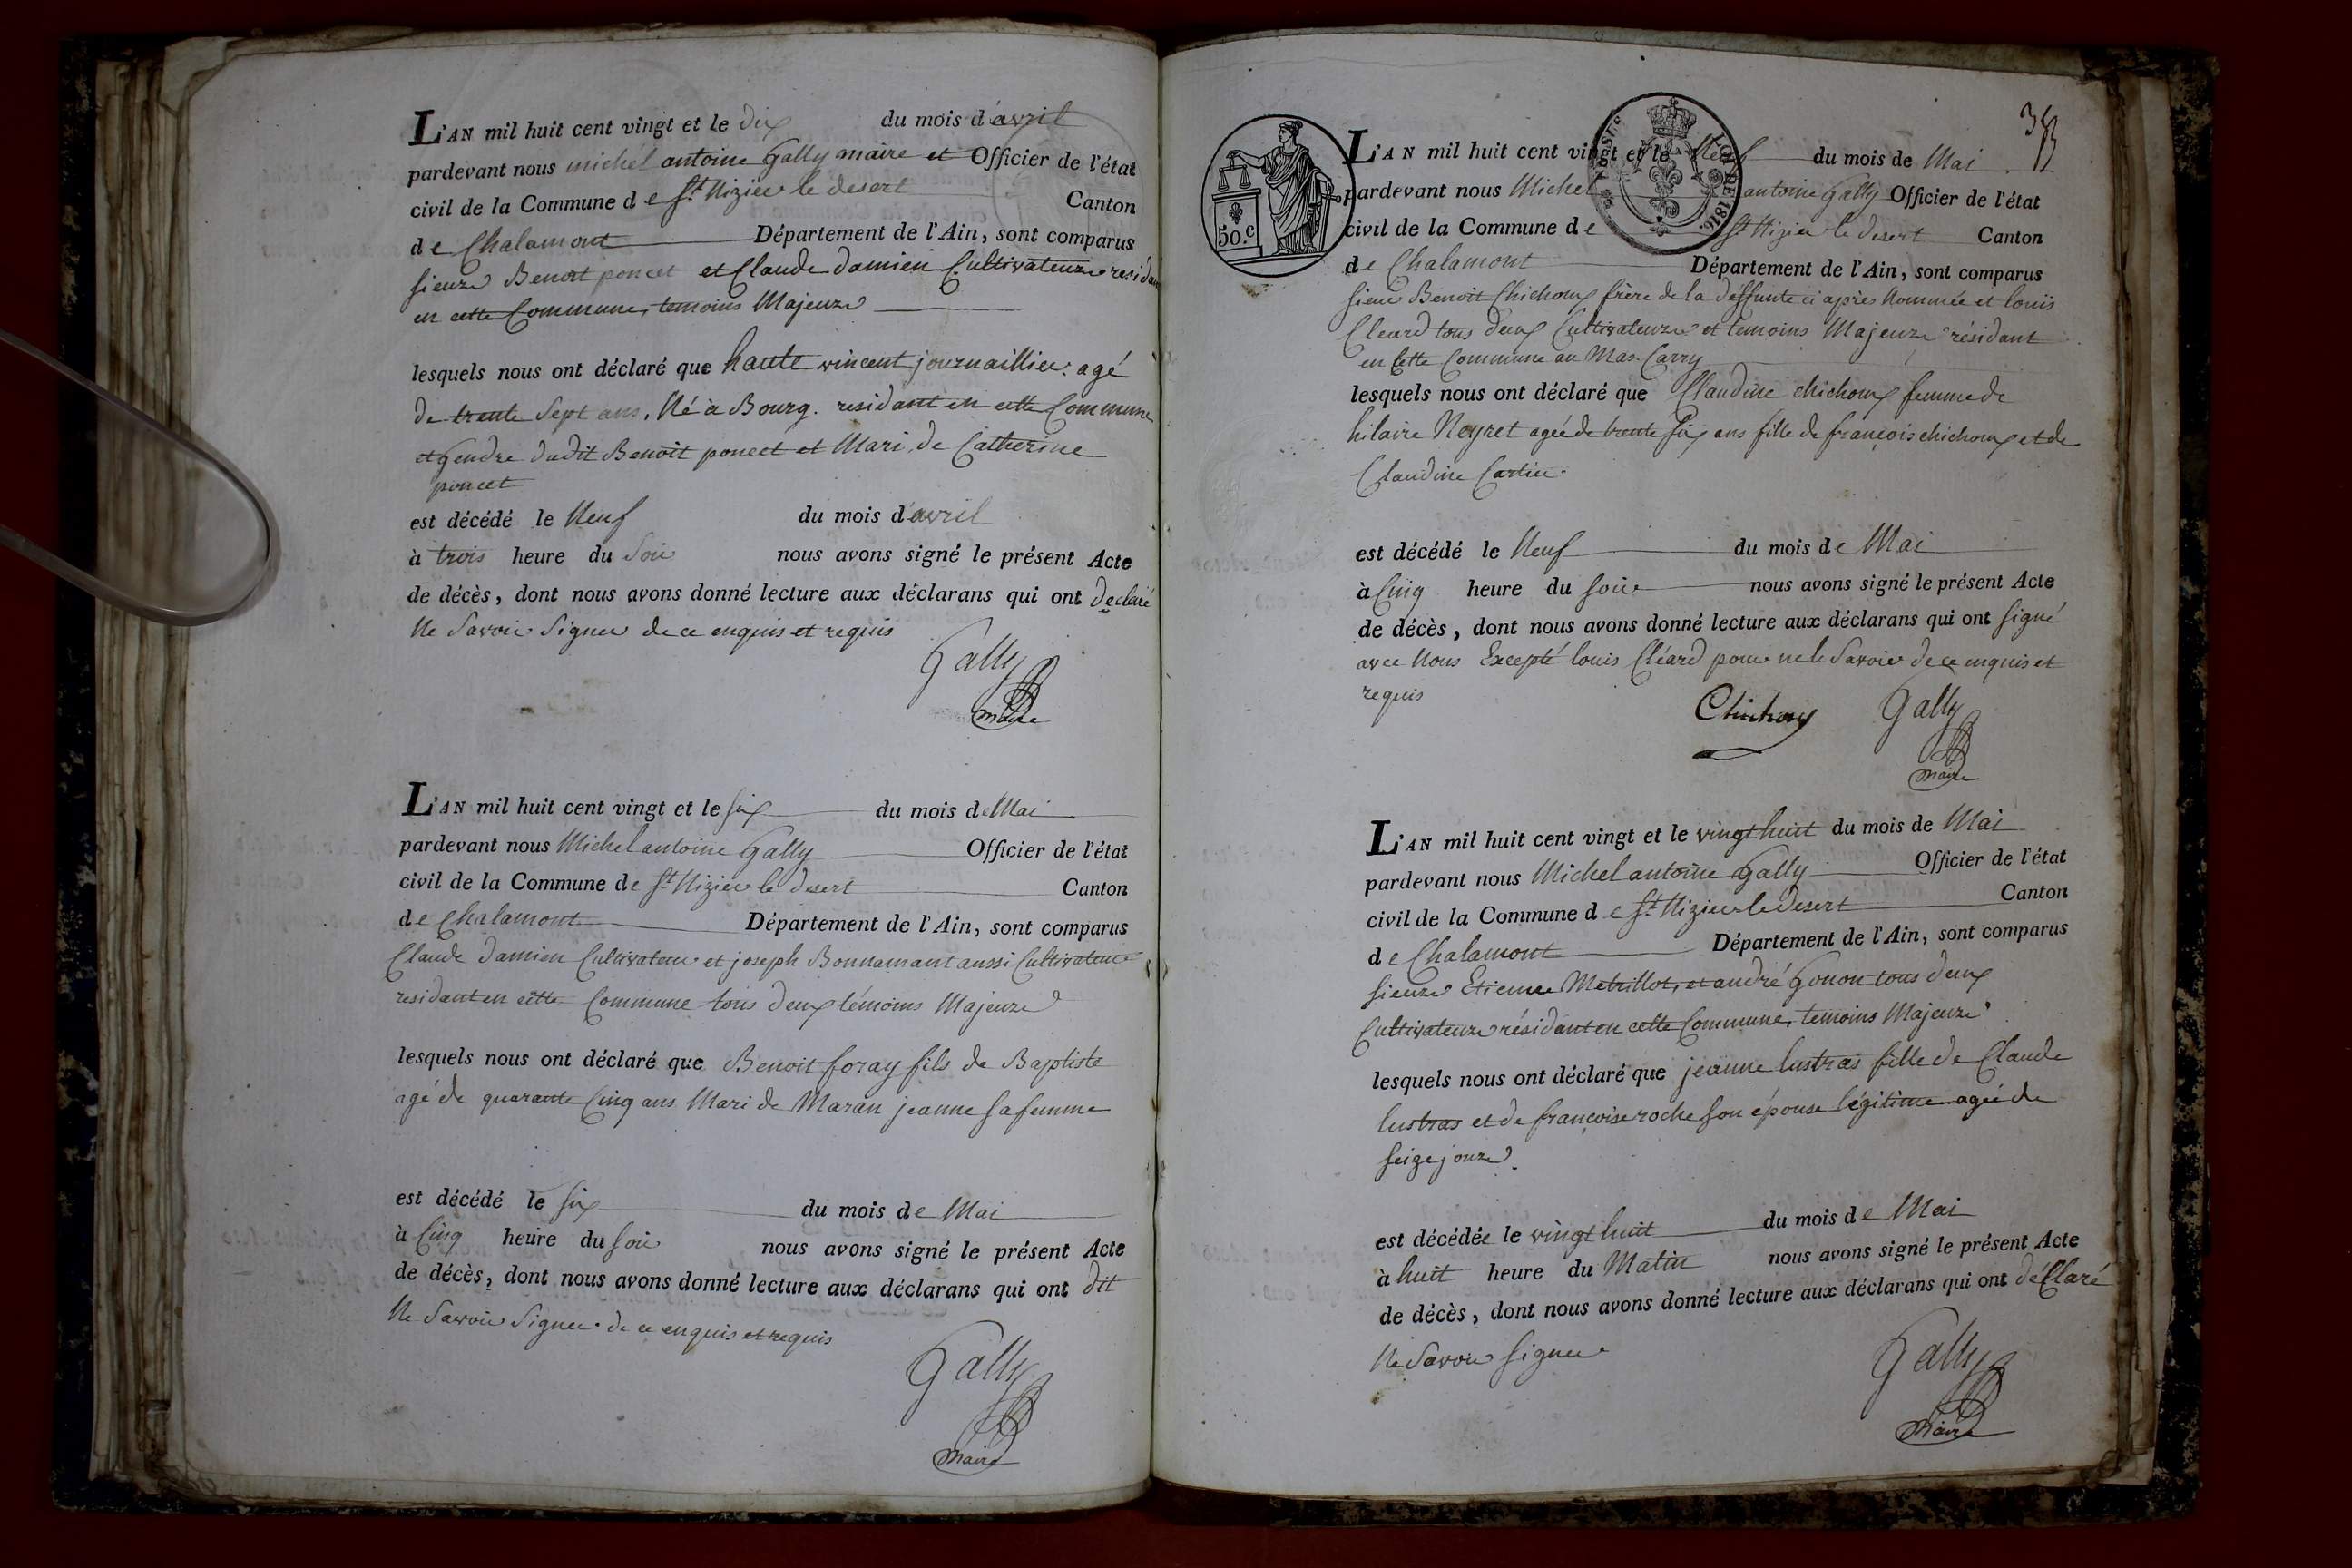 L'AN mil huit cent vingt et le dix du mois d'avril
pardevant nous michel antoine Gally maire et Officier de l'état
civil de la Commune de St Nizier le desert Canton
de Chalamont Département de l'Ain, sont comparus
sieurs Benoit poncet et Claude Damien Cultivateurs residant
en cette Commune, temoins Majeurs
lesquels nous ont déclaré que haute vincent journaillier agé
de trente Sept ans, Né à Bourg. residant en cette Commune
et gendre dudit Benoit poncet et Mari de Catherine
poncet
est décédé le Neuf du mois d'avril
à trois heure du Soir nous avons signé le présent Acte
de décès, dont nous avons donné lecture aux déclarans qui ont declaré
Ne Savoir Signer de ce enquis et requis
Gally
maire
L'AN mil huit cent vingt et le six du mois de Mai
pardevant nous Michel antoine Gally Officier de l'état
civil de la Commune de St Nizier le desert Canton
de Chalamont Département de l'Ain, sont comparus
Claude Damien Cultivateur et joseph Bonnamant aussi Cultivateur
residant en cette Commune tous deux témoins Majeurs
lesquels nous ont déclaré que Benoit foray fils de Baptiste
agé de quarante Cinq ans Mari de Maran jeanne sa femme
est décédé le six du mois de Mai
à Cinq heure du soir nous avons signé le présent Acte
de décès, dont nous avons donné lecture aux déclarans qui ont dit
Ne Savoir Signer de ce enquis et requis
Gally
maire
38
50.c
LOI DE 1816.
L'AN mil huit cent vingt et le Neuf du mois de Mai
pardevant nous Michel antoine Gally Officier de l'état
civil de la Commune de St Nizier le desert Canton
de Chalamont Département de l'Ain, sont comparus
sieur Benoit Chichoux frère de la deffunte ci après Nommée et louis
Cleard tous deux Cultivateurs et temoins Majeurs résidant
en Cette Commune au Mas. Carry
lesquels nous ont déclaré que Claudine chichoux femme de
hilaire Neyret agée de trente six ans fille de françois chichoux et de
Claudine Cartier
est décédé le Neuf du mois de Mai
à Cinq heure du soir nous avons signé le présent Acte
de décès, dont nous avons donné lecture aux déclarans qui ont signé
avec Nous Excepté louis Cléard pour ne le Savoir de ce enquis et
requis
Chichoux Gally
maire
L'AN mil huit cent vingt et le vingt huit du mois de Mai
pardevant nous Michel antoine Gally Officier de l'état
civil de la Commune de St Nizier le desert Canton
de Chalamont Département de l'Ain, sont comparus
sieurs Etienne Metrillot, et andré Gonon tous deux
Cultivateurs résidant en cette Commune, temoins Majeurs
lesquels nous ont déclaré que jeanne lustras fille de Claude
lustras et de françoise roche son épouse légitime agée de
seize jours.
est décédée le vingt huit du mois de Mai
à huit heure du Matin nous avons signé le présent Acte
de décès, dont nous avons donné lecture aux déclarans qui ont déclaré
Ne Savoir signer
Gally
maire